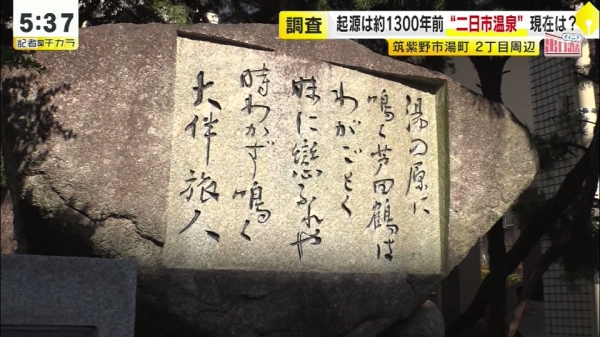 5:37
記者のチカラ
調査
起源は約1300年前 "二日市温泉" 現在は?
筑紫野市湯町 2丁目周辺
湯の原に
鳴く芦田鶴は
わがごとく
妹に戀ふれや
時わかず鳴く
大伴旅人